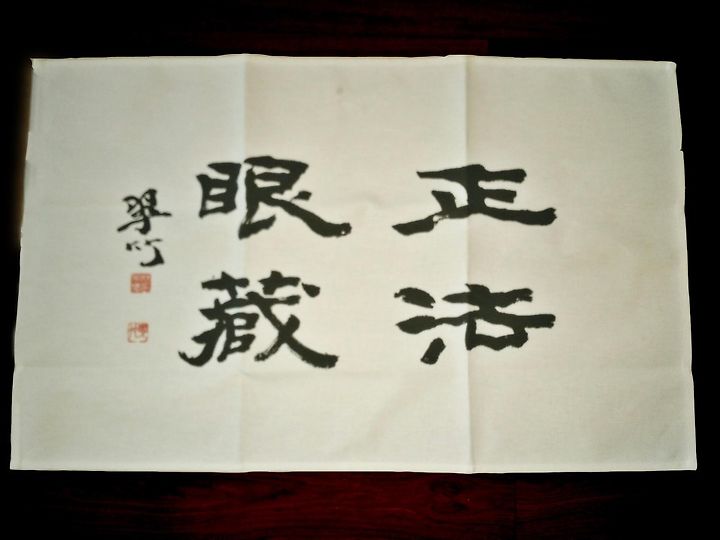 正法
眼藏
翠竹